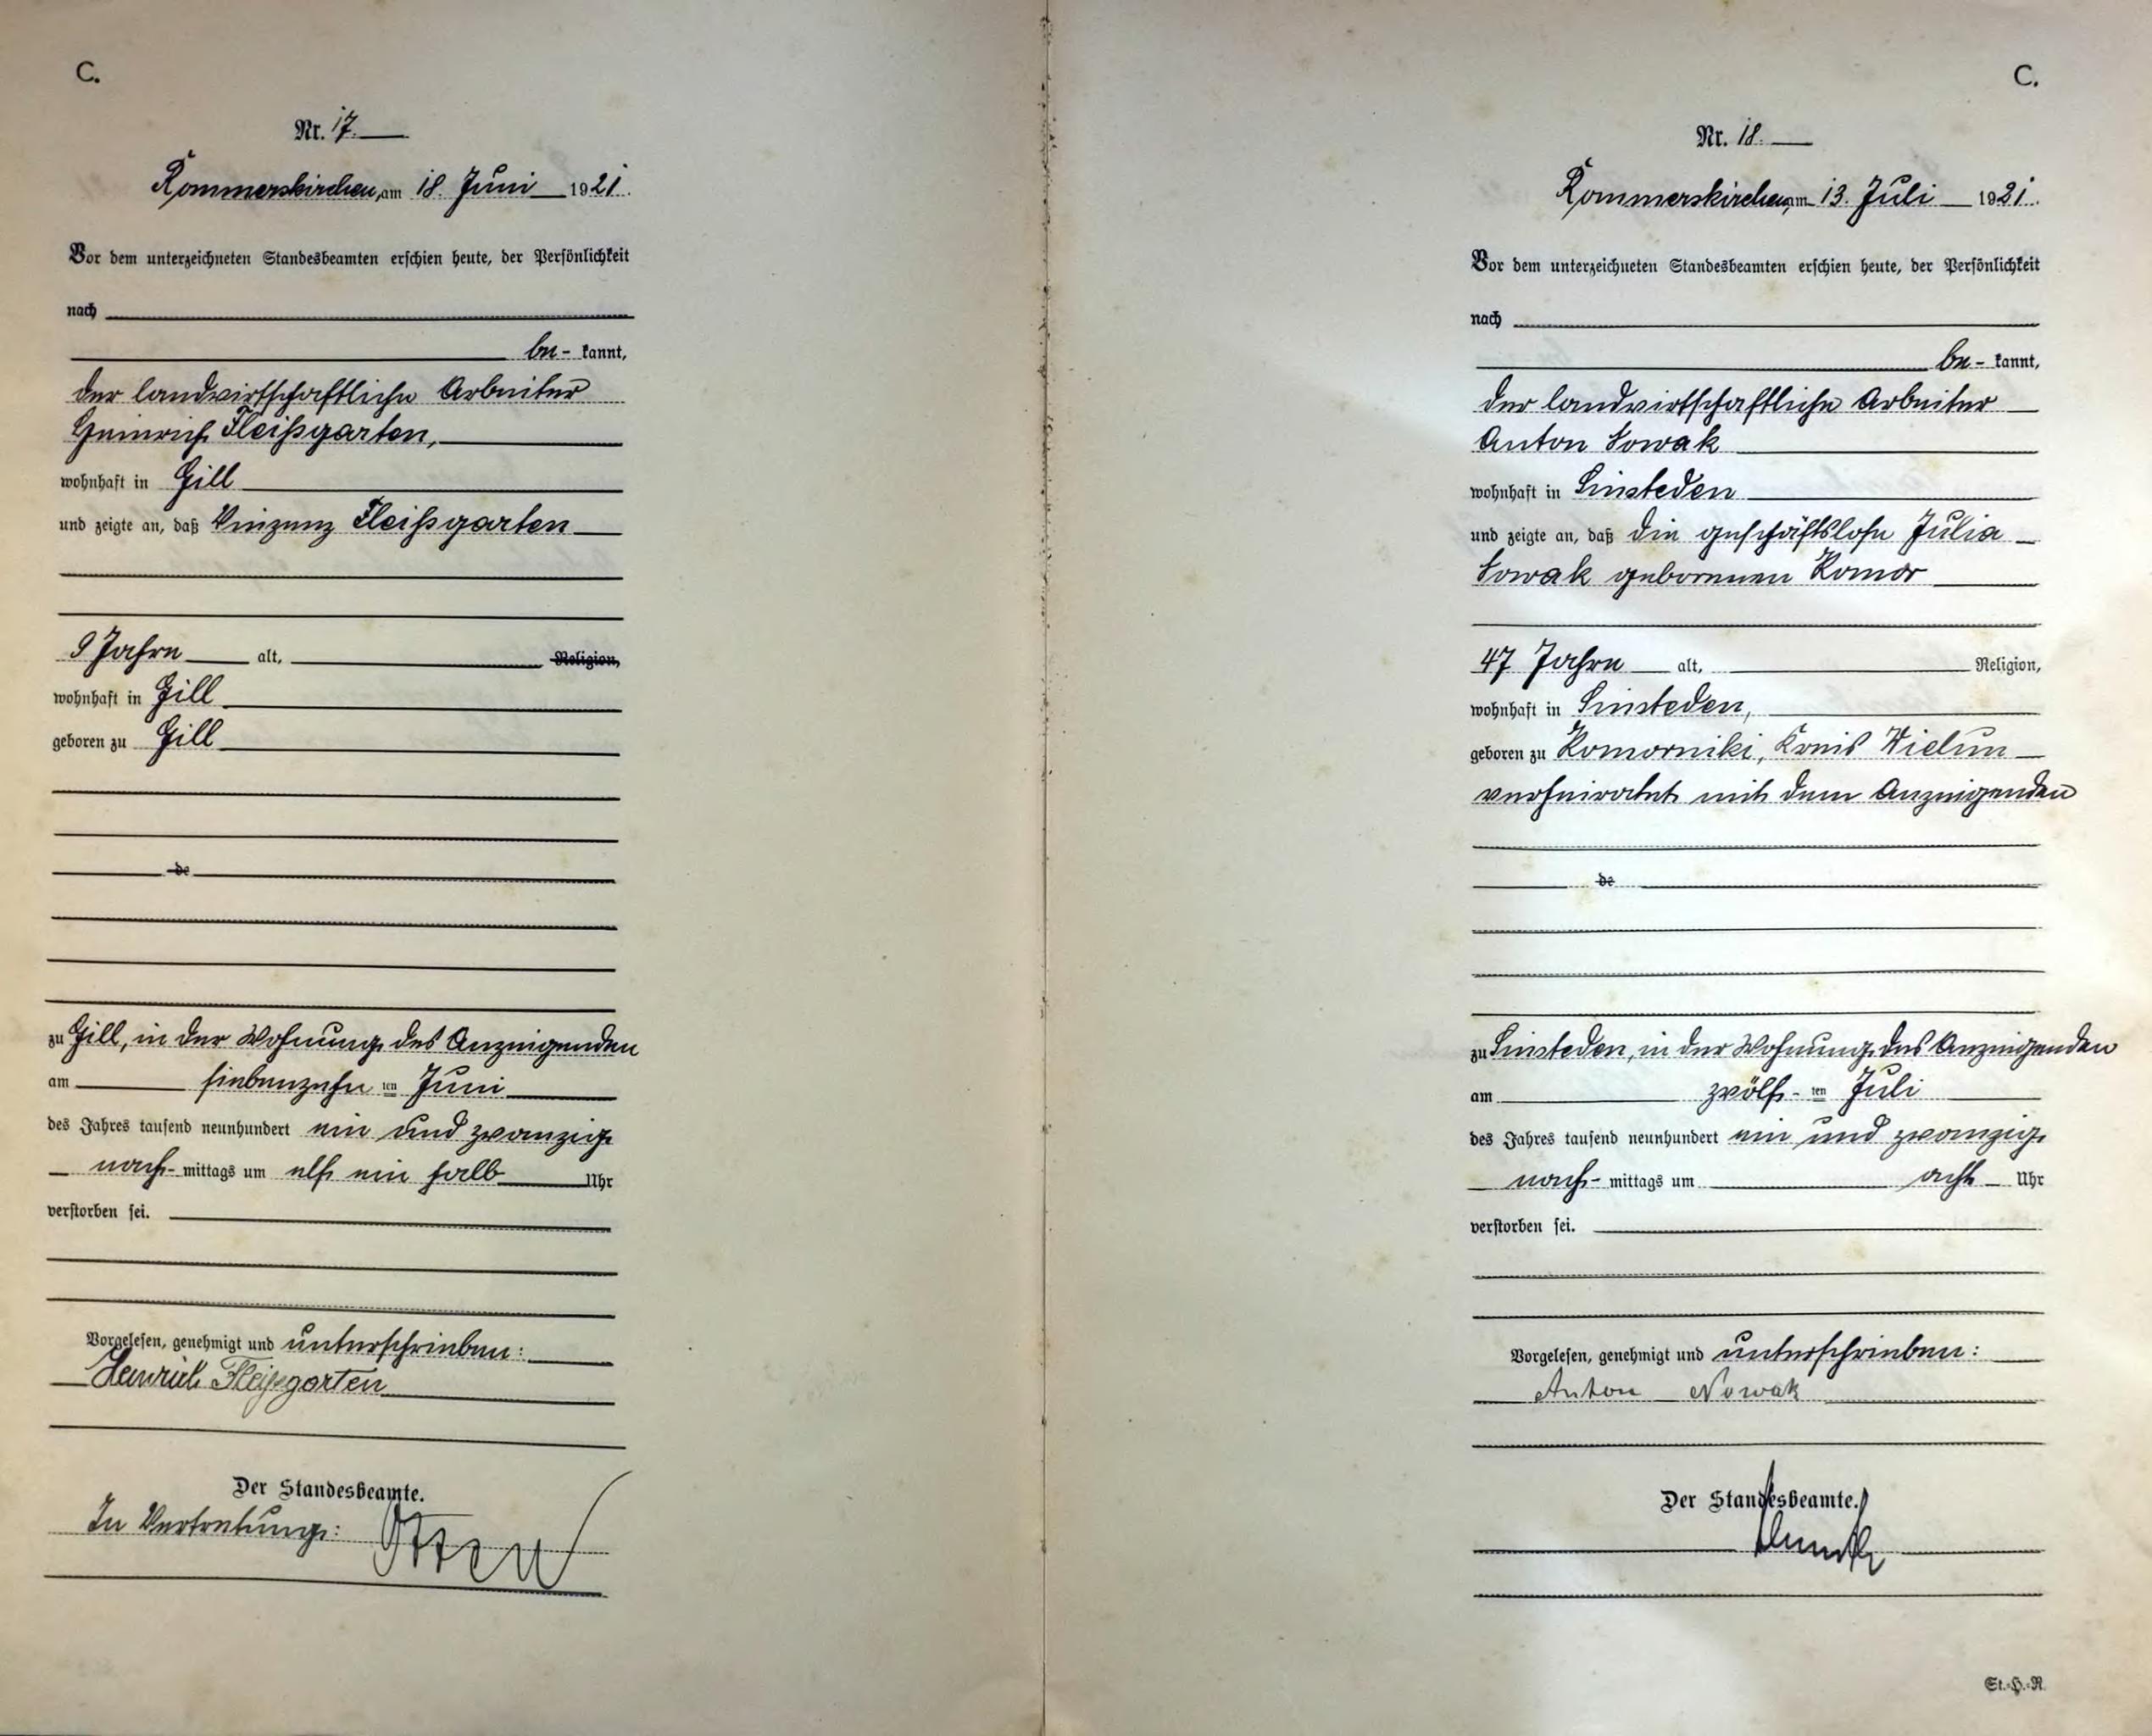 C.
Nr. 17.
Rommerskirchen, am 18. Juni 1921.
Vor dem unterzeichneten Standesbeamten erschien heute, der Persönlichkeit
nach
be- kannt,
der landwirtschaftliche Arbeiter
Heinrich Fleißgarten,
wohnhaft in Gill
und zeigte an, daß Vinzenz Fleißgarten
9 Jahre alt, Religion,
wohnhaft in Gill
geboren zu Gill
de
zu Gill, in der Wohnung des Anzeigenden
am siebenzehn ten Juni
des Jahres tausend neunhundert ein und zwanzig
nach- mittags um elf ein halb Uhr
verstorben sei.
Vorgelesen, genehmigt und unterschrieben:
Heinrich Fleissgarten
Der Standesbeamte.
In Vertretung:
C.
Nr. 18.
Rommerskirchen, am 13. Juli 1921.
Vor dem unterzeichneten Standesbeamten erschien heute, der Persönlichkeit
nach
be- kannt,
der landwirtschaftliche Arbeiter
Anton Nowak
wohnhaft in Sinsteden
und zeigte an, daß die geschäftslose Julia
Nowak geborenen Komor
47 Jahre alt, Religion,
wohnhaft in Sinsteden,
geboren zu Komorniki, Kreis Wielun
verheiratet mit dem Anzeigenden
de
zu Sinsteden, in der Wohnung des Anzeigenden
am zwölf- ten Juli
des Jahres tausend neunhundert ein und zwanzig
nach- mittags um acht Uhr
verstorben sei.
Vorgelesen, genehmigt und unterschrieben:
Anton Nowak
Der Standesbeamte.
St.-H.-R.